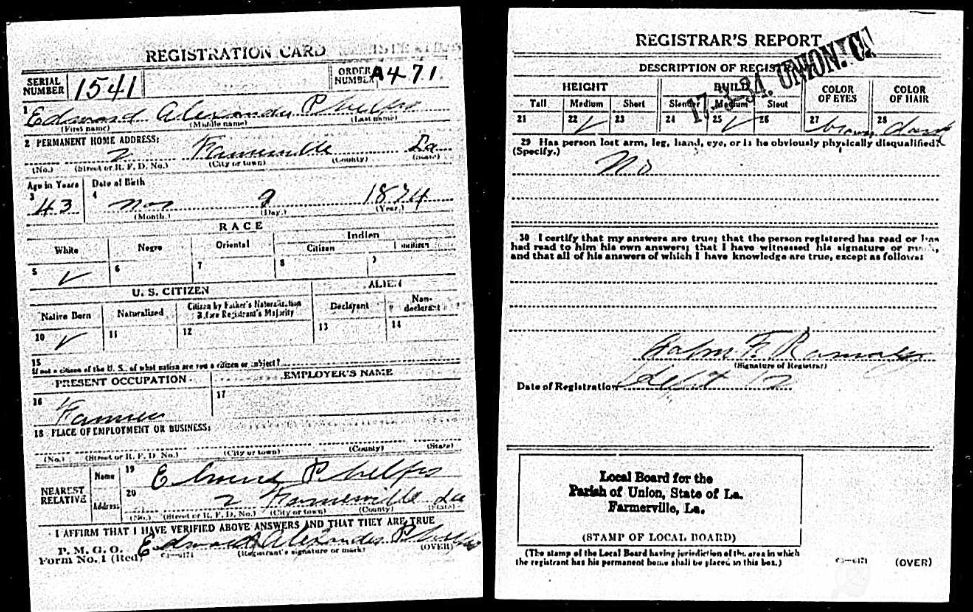 REGISTRATION CARD
SERIAL NUMBER 1541
ORDER NUMBER A471
1 Edward Alexander Phelps
(First name) (Middle name) (Last name)
2 PERMANENT HOME ADDRESS:
2 Farmerville La
(No.) (Street or R. F. D. No.) (City or town) (County) (State)
Age in Years Date of Birth
3 43 4 Nov 9 1874
(Month.) (Day.) (Year.)
RACE
White Negro Oriental Indian
Citizen
5 ✓ 6 7 8 9
U. S. CITIZEN ALIEN
Native Born Naturalized Citizen by Father's Naturalization Before Registrant's Majority Declarant Non-declarant
10 ✓ 11 12 13 14
15
If not a citizen of the U. S., of what nation are you a citizen or subject?
PRESENT OCCUPATION EMPLOYER'S NAME
16 Farmer 17
18 PLACE OF EMPLOYMENT OR BUSINESS:
(No.) (Street or R. F. D. No.) (City or town) (County) (State)
NEAREST RELATIVE Name 19 Phelps
Address 20 2 Farmerville La
(No.) (Street or R. F. D. No.) (City or town) (County) (State)
I AFFIRM THAT I HAVE VERIFIED ABOVE ANSWERS AND THAT THEY ARE TRUE
P. M. G. O. Edward Alexander Phelps
Form No. 1 (Red) (Registrant's signature or mark) (OVER)
REGISTRAR'S REPORT
17-3-34. UNION. C.
DESCRIPTION OF REGISTRANT
HEIGHT BUILD COLOR OF EYES COLOR OF HAIR
Tall Medium Short Slender Medium Stout
21 22 ✓ 23 24 25 ✓ 26 27 brown 28 dark
29 Has person lost arm, leg, hand, eye, or is he obviously physically disqualified?
(Specify.) No
30 I certify that my answers are true; that the person registered has read or has
had read to him his own answers; that I have witnessed his signature or mark,
and that all of his answers of which I have knowledge are true, except as follows:
(Signature of Registrar)
Date of Registration Sept 12
Local Board for the
Parish of Union, State of La.
Farmerville, La.
(STAMP OF LOCAL BOARD)
(The stamp of the Local Board having jurisdiction of the area in which
the registrant has his permanent home shall be placed in this box.)
(OVER)